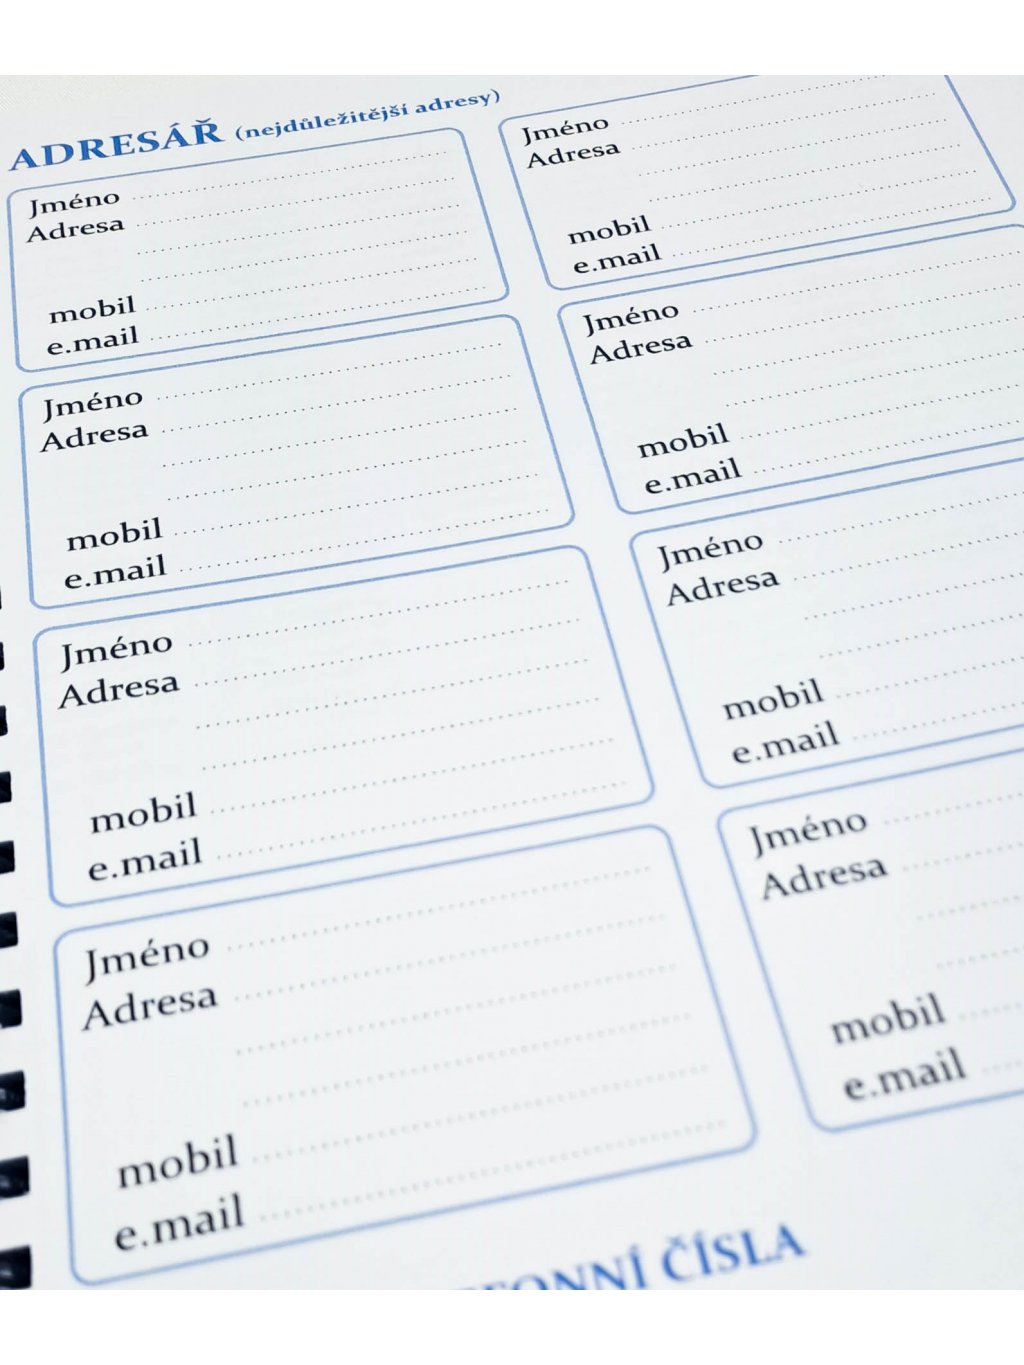 ADRESÁŘ (nejdůležitější adresy)
Jméno
Adresa
mobil
e.mail
Jméno
Adresa
mobil
e.mail
Jméno
Adresa
mobil
e.mail
Jméno
Adresa
mobil
e.mail
Jméno
Adresa
mobil
e.mail
Jméno
Adresa
mobil
e.mail
Jméno
Adresa
mobil
e.mail
Jméno
Adresa
mobil
e.mail
ČÍSLA